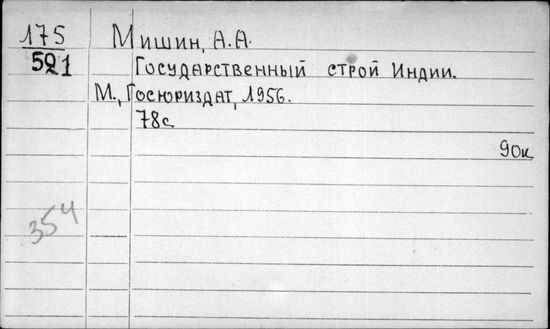 175
521
Мишин, А.А.
Государственный строй Индии.
М., Госюриздат, 1956.
78с
90к
354